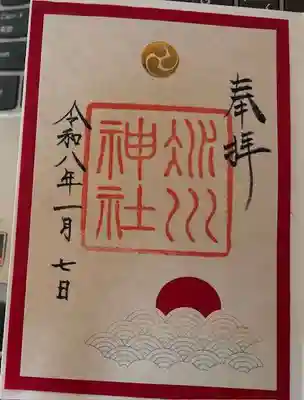 奉拝
氷川
神社
令和八年一月七日